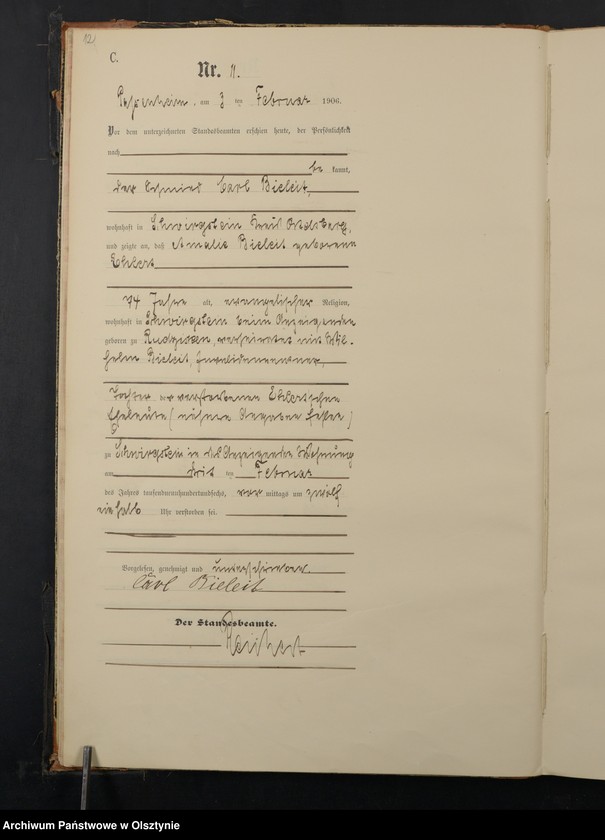 12
C.
Nr. 11.
am 3 ten Februar 1906.
Vor dem unterzeichneten Standesbeamten erschien heute, der Persönlichkeit
nach
be kannt,
der Schmied Carl Bieleit,
wohnhaft in Schwirgstein Kreis Ortelsburg,
und zeigte an, daß Amalie Bieleit geborene
Ehlert
74 Jahre alt, evangelischer Religion,
wohnhaft in Schwirgstein beim Anzeigenden
geboren zu verheiratet mit Wil-
helm Bieleit,
Tochter der verstorbenen Ehlertschen
Eheleute (nähere Angaben fehlen)
zu Schwirgstein in des Anzeigenden Wohnung
am drit ten Februar
des Jahres tausendneunhundertundsechs, vor mittags um zwölf
ein halb Uhr verstorben sei.
Vorgelesen, genehmigt und unterschrieben.
Carl Bieleit
Der Standesbeamte.
Archiwum Państwowe w Olsztynie